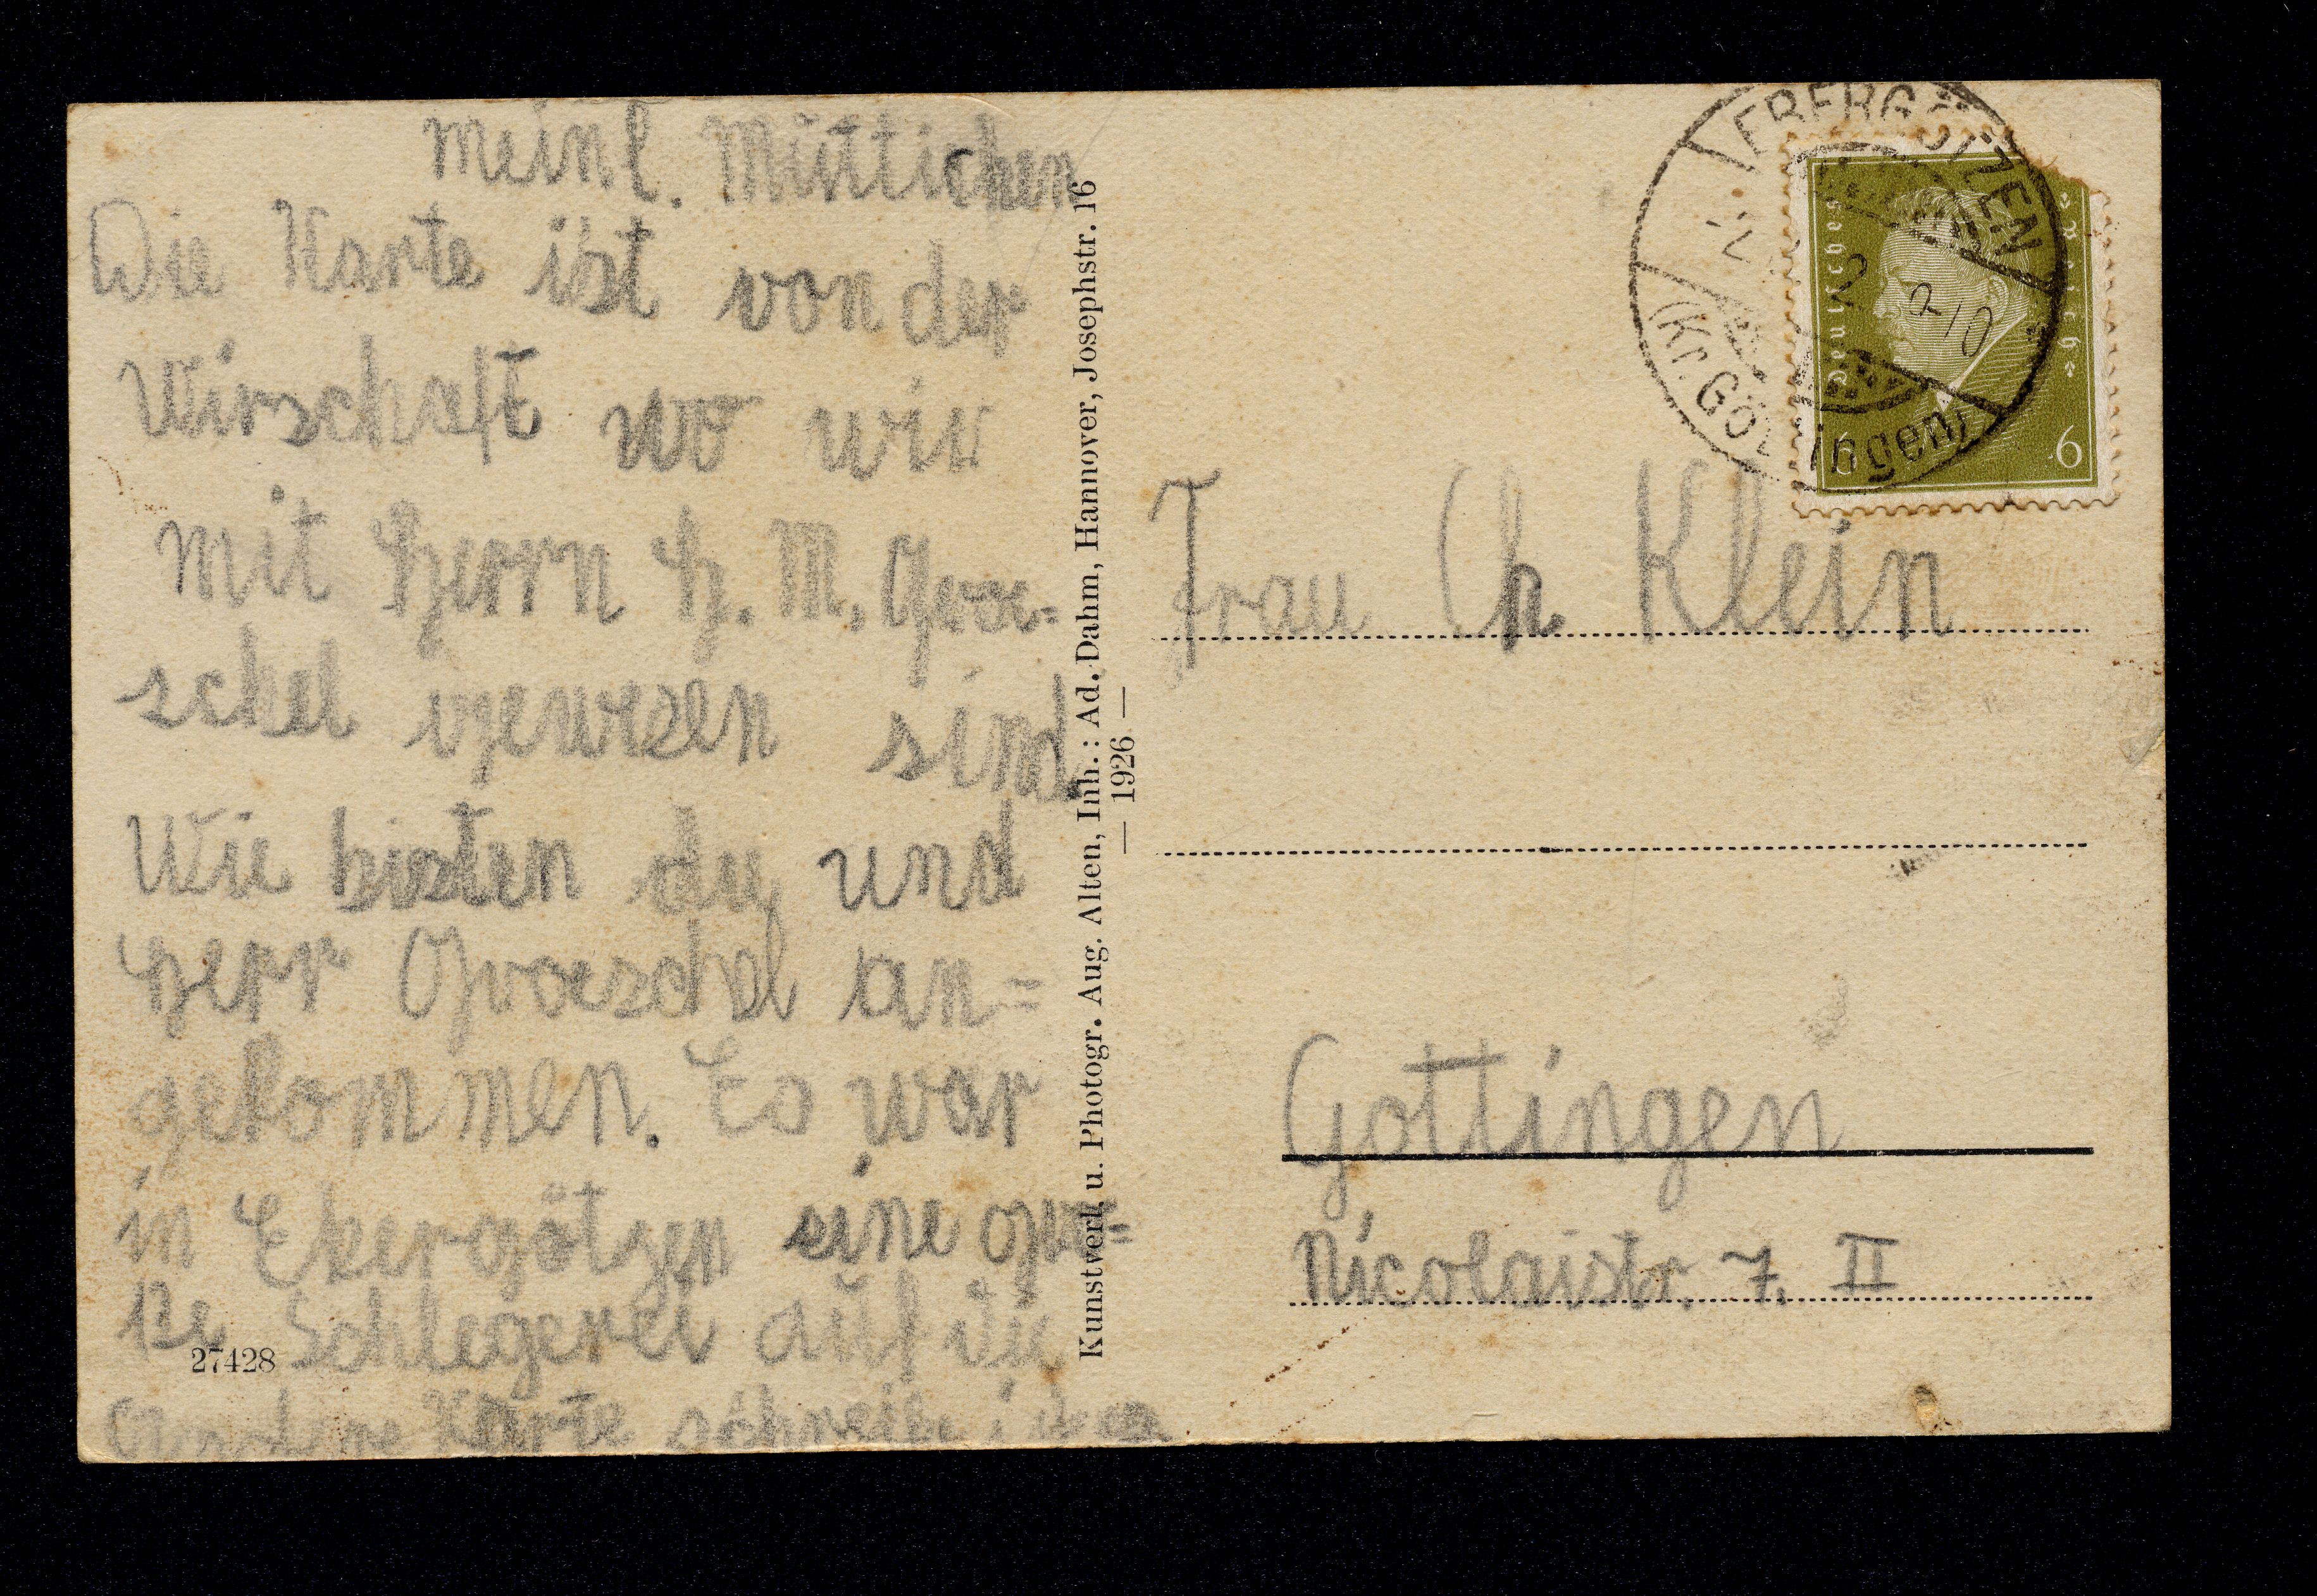 Mein l. Müttichen
Die Karte ist von der
Wirschaft wo wir
mit Herrn H. M. Groe-
schel gewesen sind
Wie bisten du und
Herr Groeschel an=
gekommen. Es war
in Ebergötzen eine gro=
se Schlegerei auf die
Karte schreib
27428
Kunstverl. u. Photogr. Aug. Alten, Inh.: Ad. Dahm, Hannover, Josephstr. 16
— 1926 —
EBERGÖTZEN
(Kr. Göttingen)
Deutsches Reich
6 6
Frau Ch. Klein
Gottingen
Nicolaistr. 7. II